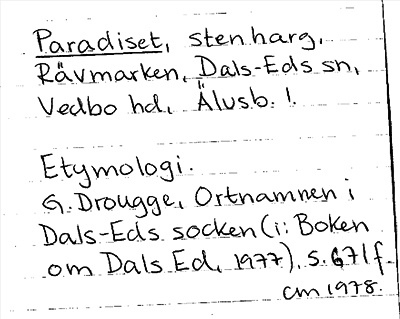 Paradiset, stenharg,
Rävmarken, Dals-Eds sn,
Vedbo hd, Älvsb. l.
Etymologi.
G. Drougge, Ortnamnen i
Dals-Eds socken (i: Boken
om Dals Ed, 1977), s. 671f.
CM 1978.